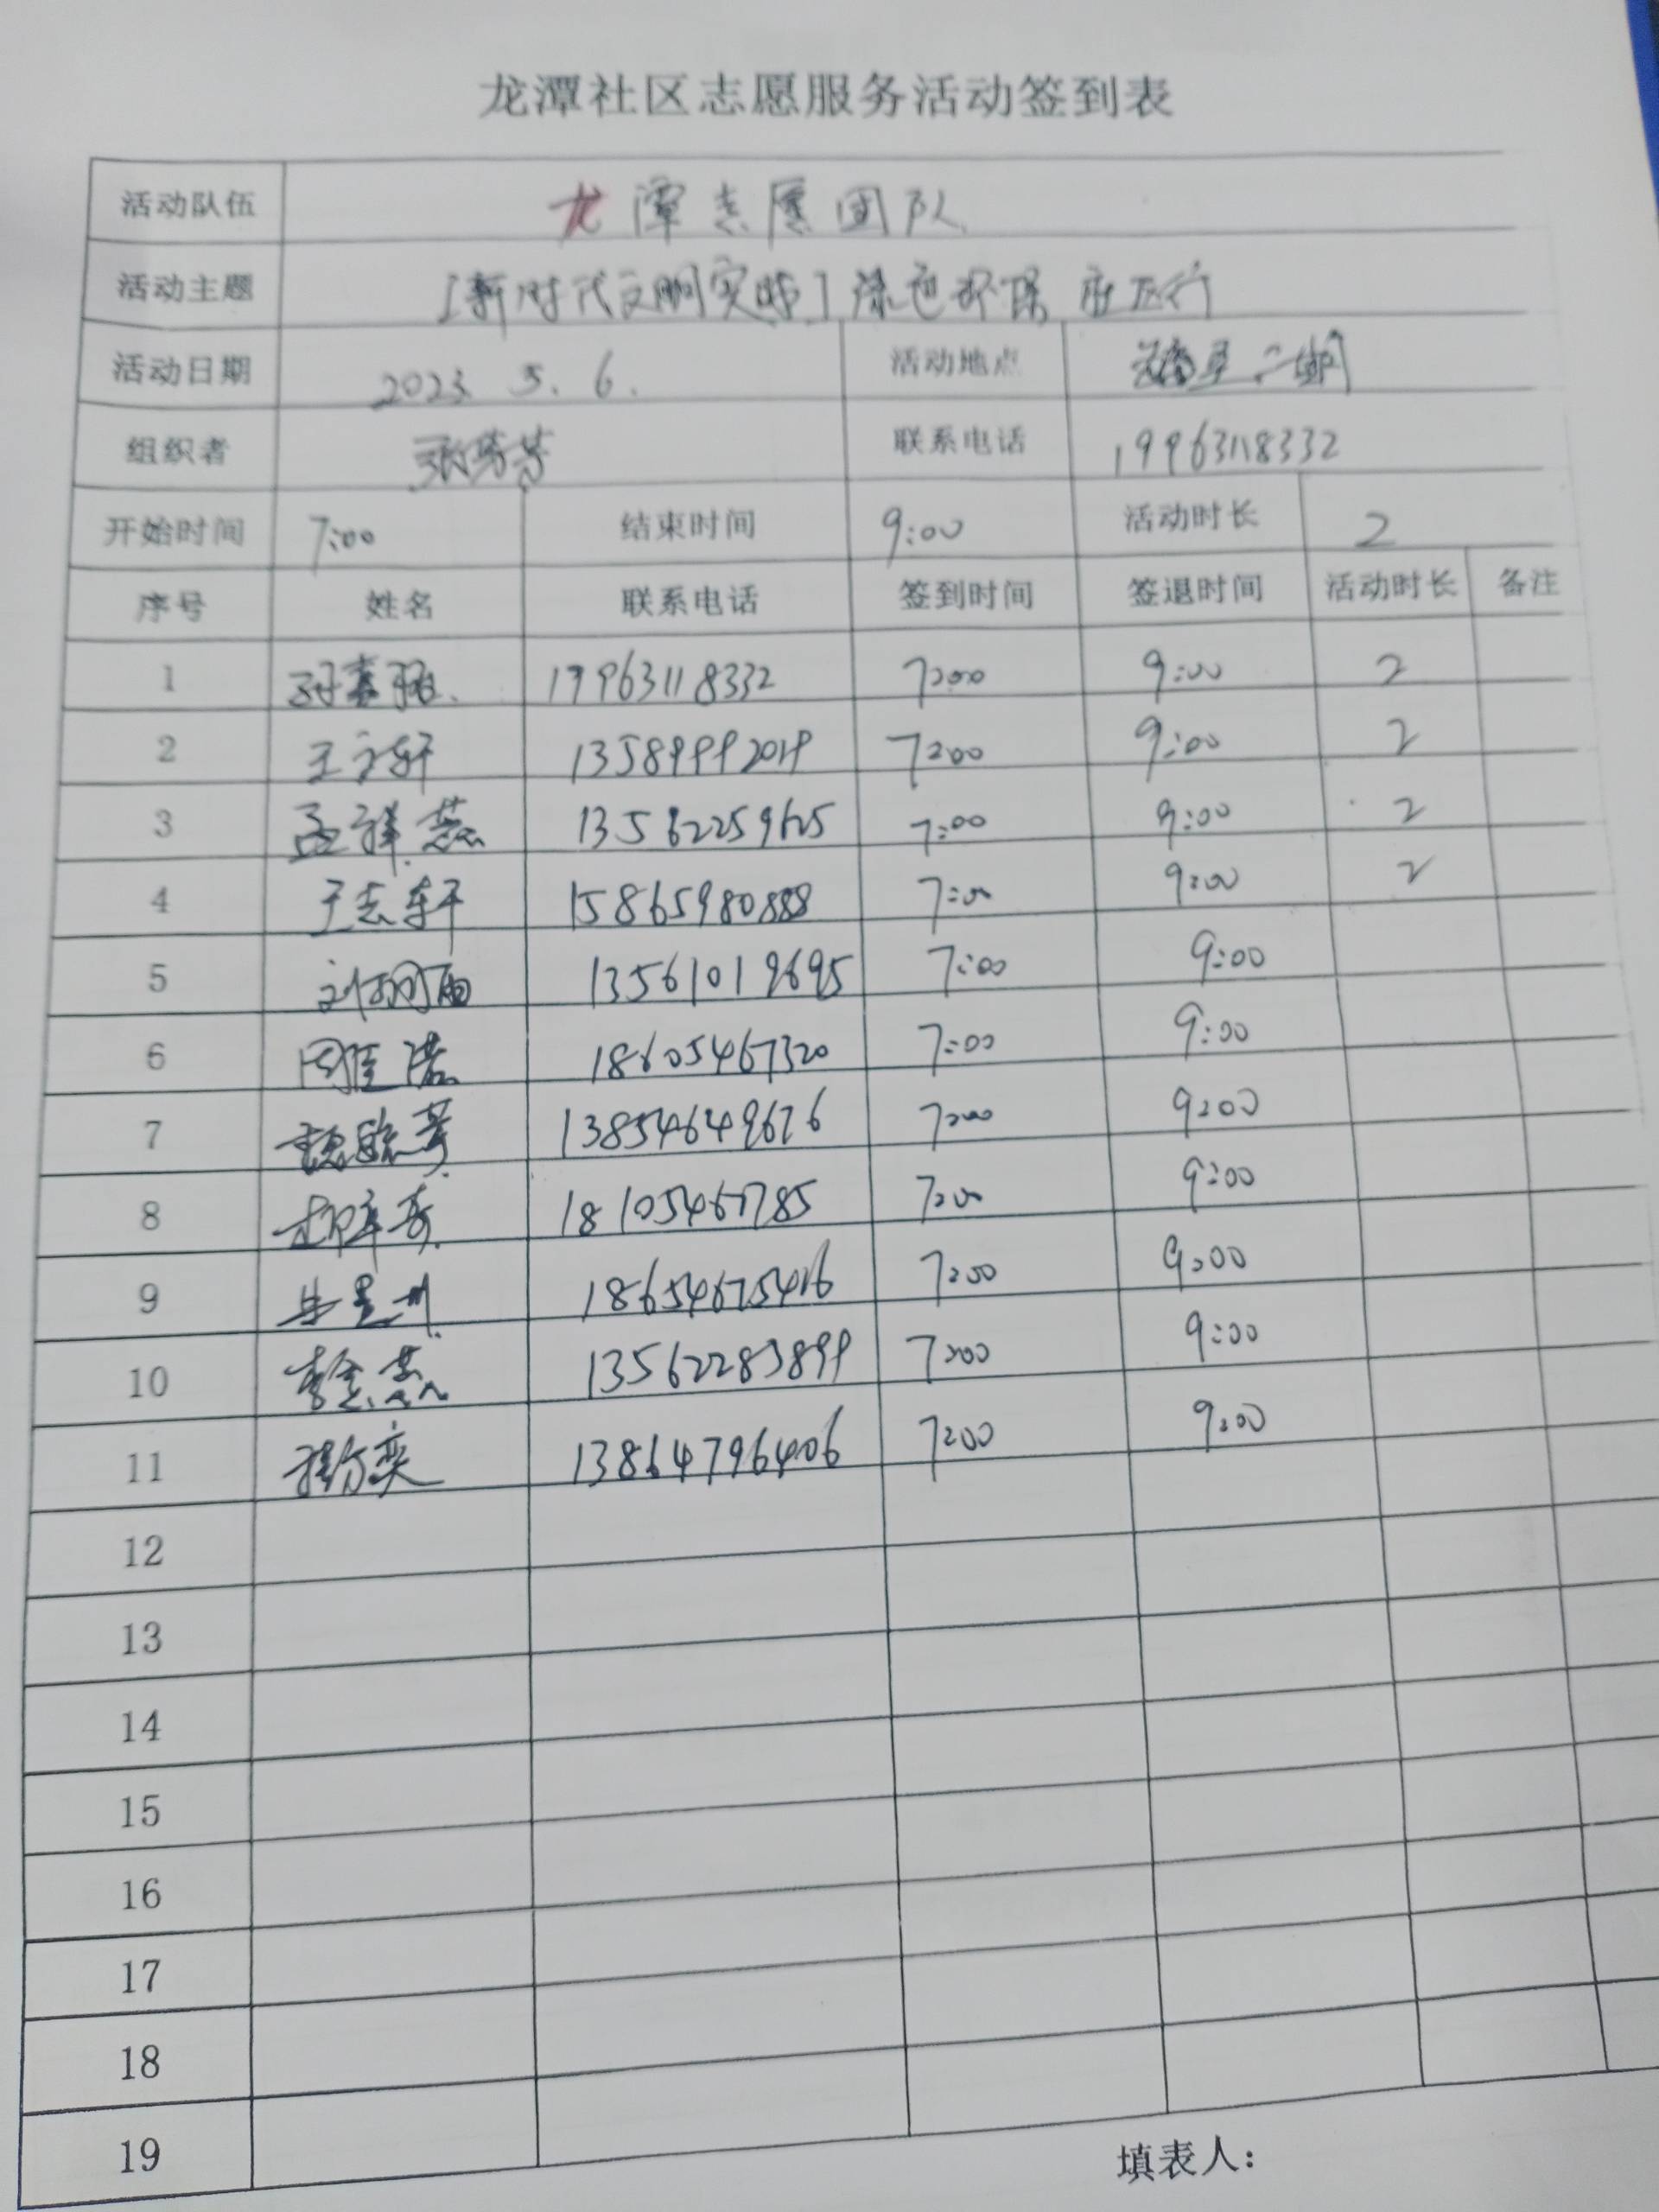 龙潭社区志愿服务活动签到表
活动队伍 龙潭志愿团队
活动主题 [新时代文明实践]绿色环保 在飞行
活动日期 2023. 5. 6. 活动地点 二期
组织者 张芳芳 联系电话 19963118332
开始时间 7:00 结束时间 9:00 活动时长 2
序号 姓名 联系电话 签到时间 签退时间 活动时长 备注
1 19963118332 7:00 9:00 2
2 王文轩 13589992019 7:00 9:00 2
3 孟祥慧 13562259625 7:00 9:00 2
4 于志轩 15865980888 7:00 9:00 2
5 13561019695 7:00 9:00
6 周佳诺 18605467320 7:00 9:00
7 13854649676 7:00 9:00
8 18105467785 7:00 9:00
9 18654675416 7:00 9:00
10 13562283899 7:00 9:00
11 13864796406 7:00 9:00
12
13
14
15
16
17
18
19
填表人: